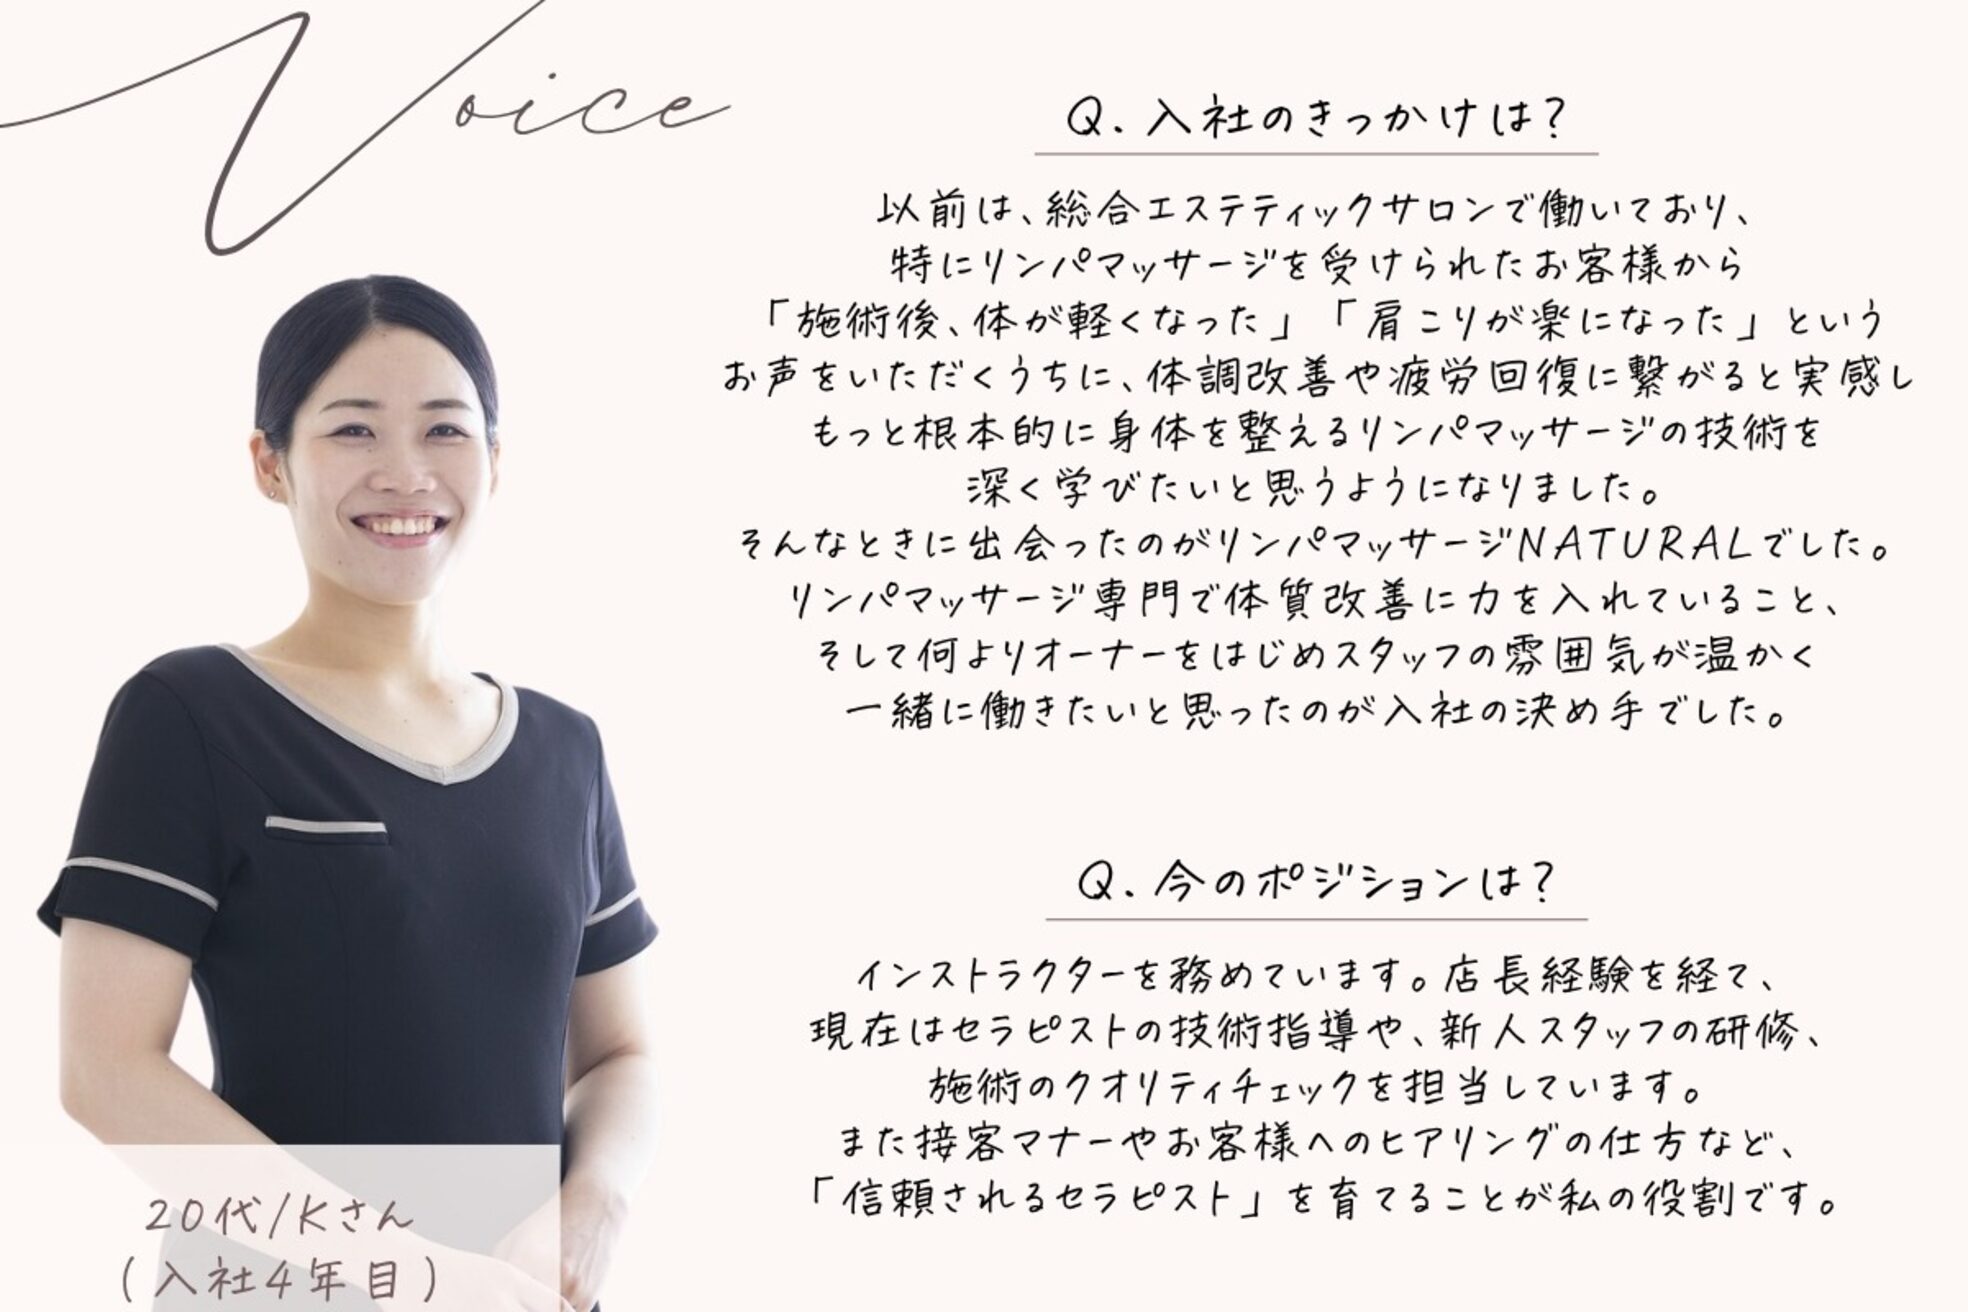 Voice
Q.入社のきっかけは？
以前は、総合エステティックサロンで働いており、
特にリンパマッサージを受けられたお客様から
「施術後、体が軽くなった」「肩こりが楽になった」という
お声をいただくうちに、体調改善や疲労回復に繋がると実感し
もっと根本的に身体を整えるリンパマッサージの技術を
深く学びたいと思うようになりました。
そんなときに出会ったのがリンパマッサージNATURALでした。
リンパマッサージ専門で体質改善に力を入れていること、
そして何よりオーナーをはじめスタッフの雰囲気が温かく
一緒に働きたいと思ったのが入社の決め手でした。
Q.今のポジションは？
インストラクターを務めています。店長経験を経て、
現在はセラピストの技術指導や、新人スタッフの研修、
施術のクオリティチェックを担当しています。
また接客マナーやお客様へのヒアリングの仕方など、
「信頼されるセラピスト」を育てることが私の役割です。
20代/Kさん
(入社4年目)